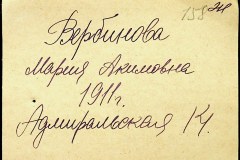 Вербинова
Мария Акимовна
1911 г.
Адмиральская 14.